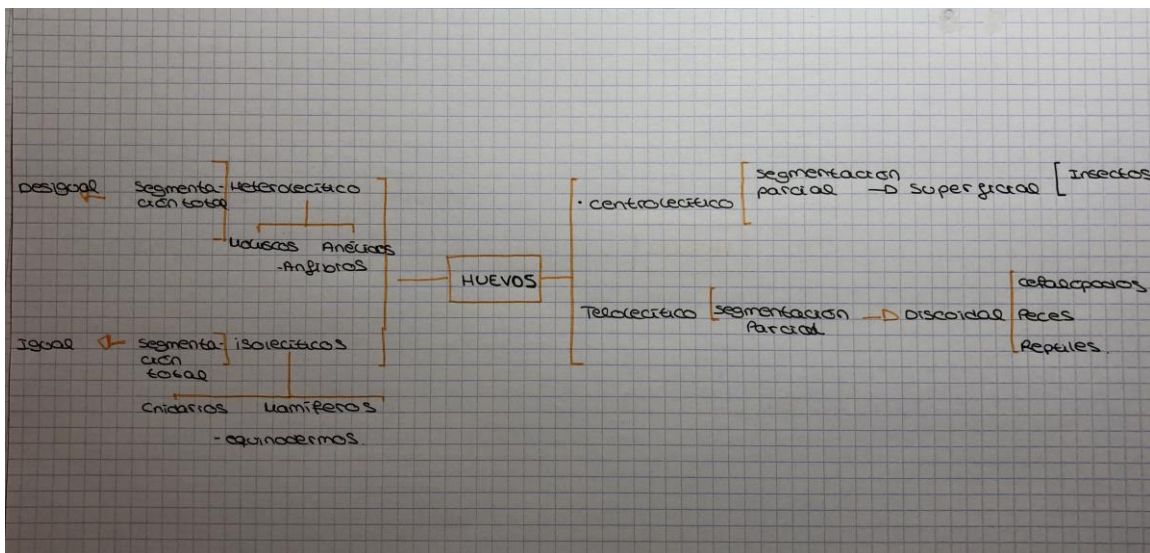 Desigual
Segmenta-
ción total
Heterolecítico
Moluscos Anélidos
-Anfibios
Igual
segmenta-
ción
total
isolecíticos
Cnidarios Mamíferos
-equinodermos.
HUEVOS
· centrolecítico
segmentación
parcial
superficial
Insectos
Telolecítico
segmentación
Parcial
Discoidal
cefalopodos
Peces
Reptiles.